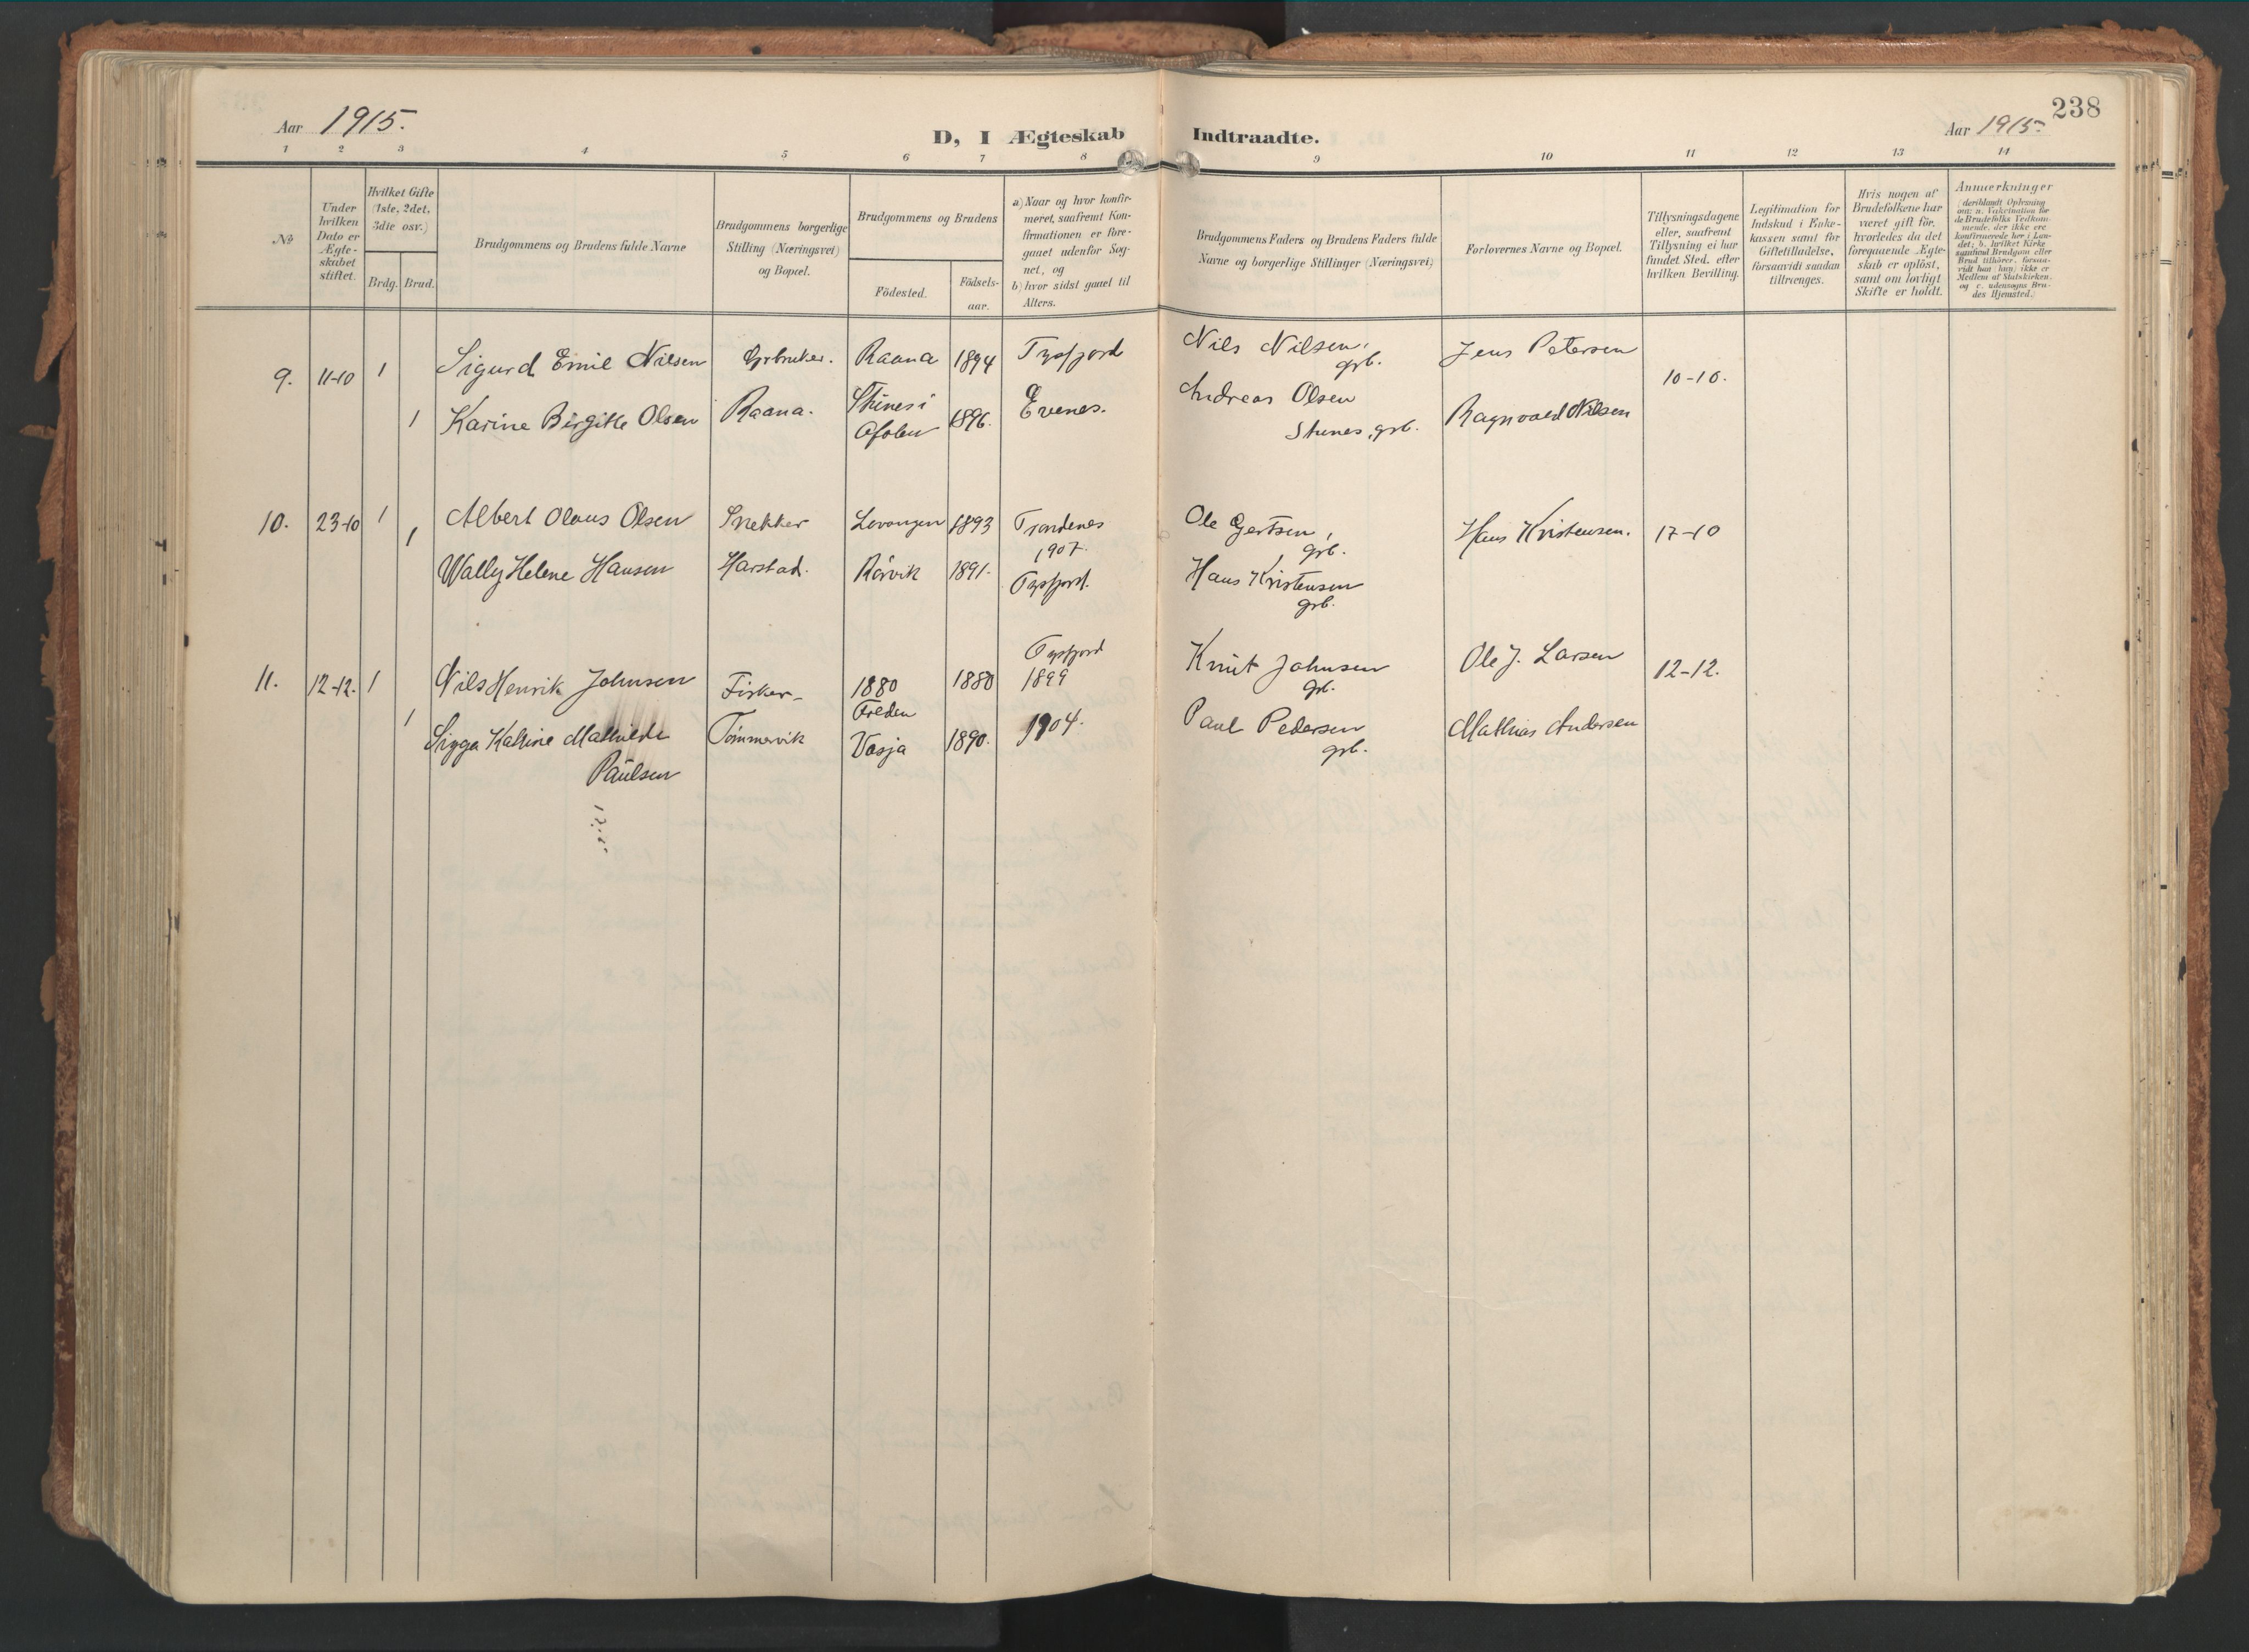 238
Aar 1915.
D, I Ægteskab Indtraadte.
Aar 1915
1 2 3 4 5 6 7 8 9 10 11 12 13 14
No
Under
hvilken
Dato er
Ægte-
skabet
stiftet.
Hvilket Gifte
(1ste, 2det,
3die osv.)
Brdg. Brud.
Brudgommens og Brudens fulde Navne
Brudgommens borgerlige
Stilling (Næringsvei)
og Bopæl.
Brudgommens og Brudens
Födested.
Födsels-
aar.
a) Naar og hvor konfir-
meret, saafremt Kon-
firmationen er fore-
gaaet udenfor Sog-
net, og
b) hvor sidst gaaet til
Alters.
Brudgommens Faders og Brudens Faders fulde
Navne og borgerlige Stillinger (Næringsvei)
Forlovernes Navne og Bopæl.
Tillysningsdagene
eller, saafremt
Tillysning ei har
fundet Sted, efter
hvilken Bevilling.
Legitimation for
Indskud i Enke-
kassen samt for
Giftetilladelse,
forsaavidt saadan
tiltrænges.
Hvis nogen af
Brudefolkene har
været gift før,
hvorledes da det
foregaaende Ægte-
skab er oplöst,
samt om lovligt
Skifte er holdt.
Anmærkninger
(deriblandt Oplysning
om: a. Vakcination for
de Brudefolks Vedkom-
mende, der ikke ere
konfirmerede her i Lan-
det; b. hvilket Kirke
samfund Brudgom eller
Brud tilhører, forsaa-
vidt han (hun) ikke er
Medlem af Statskirken,
og c. udensogns Bru-
des Hjemsted.)
9. 11-10 1 Sigurd Emil Nilsen Grbruker. Raana 1894 Tysfjord Nils Nilsen, grb. Jens Petersen 10-10.
1 Karine Birgitte Olsen Raana. Stunes i Ofoten 1896. Evenes. Andreas Olsen Stunes, grb. Ragnvald Nilsen
10. 23-10 1 Albert Olaus Olsen Snekker Levangen 1893 Trondenes 1907. Ole Gertsen, grb. Hans Kristensen. 17-10
1 Wally Helene Hansen Harstad. Rørvik 1891. Tysfjord. Hans Kristensen grb.
11. 12-12. 1 Nils Henrik Johnsen Fisker 1880 1880 Tysfjord 1899 Knut Johnsen gb. Ole J. Larsen 12-12.
1 Sigga Katrine Mathilde Paulsen Tømmervik Vasja 1890. 1904. Paul Pedersen grb. Mathias Andersen